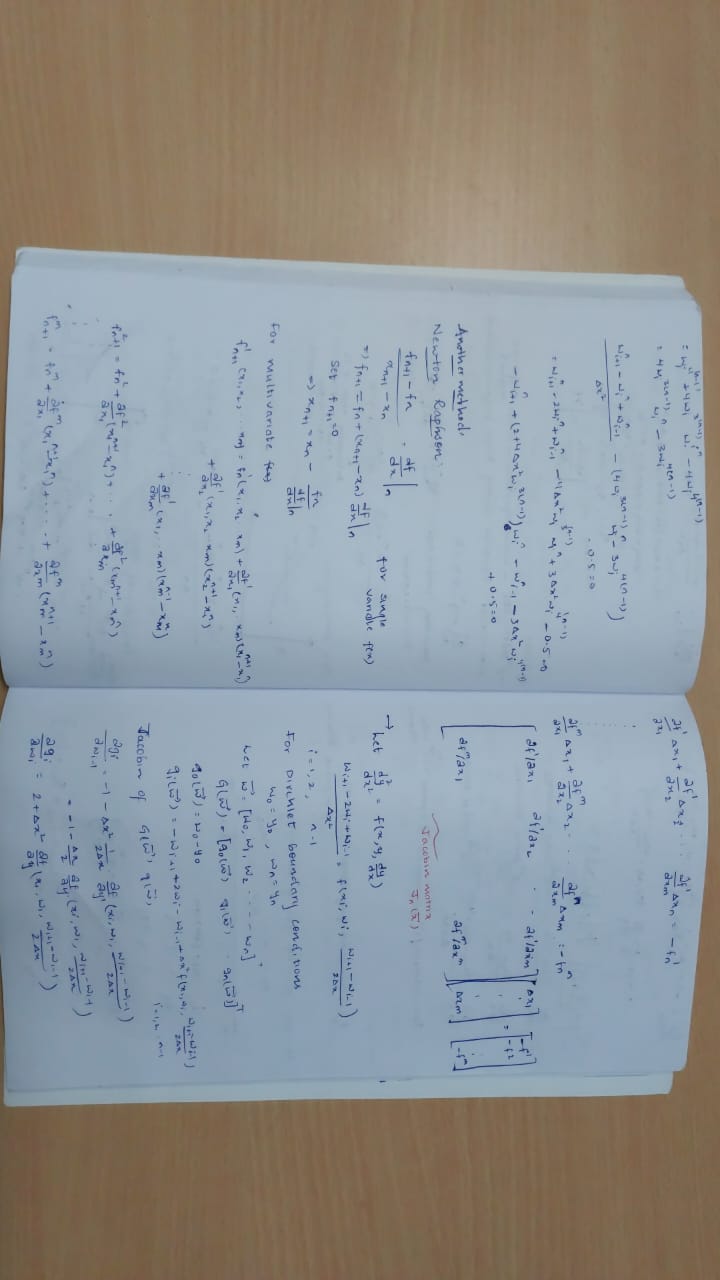 = w_i^{(n-1)} + 4w_i^{3(n-1)} w_i^n - 4w_i^{4(n-1)}
= 4w_i^{3(n-1)} w_i^n - 3w_i^{4(n-1)}
\frac{w_{i+1}^n - w_i^n + w_{i-1}^n}{Δx^2} - (4w_i^{3(n-1)} w_i^n - 3w_i^{4(n-1)})
- 0.5 = 0
= w_{i+1}^n - 2w_i^n + w_{i-1}^n - 4Δx^2 w_i^{3(n-1)} w_i^n + 3Δx^2 w_i^{4(n-1)} - 0.5 = 0
- w_{i+1}^n + (2 + 4Δx^2 w_i^{3(n-1)}) w_i^n - w_{i-1}^n - 3Δx^2 w_i^{4(n-1)}
+ 0.5 = 0
Another method,
Newton Raphson:
\frac{f_{n+1} - f_n}{x_{n+1} - x_n} = \frac{df}{dx}|_n for single
⇒ f_{n+1} = f_n + (x_{n+1} - x_n) \frac{df}{dx}|_n variable f(x)
Set f_{n+1} = 0
⇒ x_{n+1} = x_n - \frac{f_n}{\frac{df}{dx}|_n}
for multivariate f(x)
f_{n+1}^1 (x_1, x_2 .. x_m) = f_n^1(x_1, x_2 x_m) + \frac{∂f^1}{∂x_1} (x_1, x_m)(x_1^{n+1} - x_1^n)
+ \frac{∂f^1}{∂x_2} (x_1, x_2 .. x_m)(x_2^{n+1} - x_2^n)
+ \frac{∂f^1}{∂x_m} (x_1, .. x_m)(x_m^{n+1} - x_m^n)
f_{n+1}^2 = f_n^2 + \frac{∂f^2}{∂x_1} (x_1^{n+1} - x_1^n) + . . , + \frac{∂f^2}{∂x_m} (x_m^{n+1} - x_m^n)
f_{n+1}^m = f_n^m + \frac{∂f^m}{∂x_1} (x_1^{n+1} - x_1^n) + . . . . + \frac{∂f^m}{∂x_m} (x_m^{n+1} - x_m^n)
\frac{∂f^1}{∂x_1} Δx_1 + \frac{∂f^1}{∂x_2} Δx_2 . . \frac{∂f^1}{∂x_m} Δx_n = -f_n^1
\frac{∂f^m}{∂x_1} Δx_1 + \frac{∂f^m}{∂x_2} Δx_2 . . . \frac{∂f^m}{∂x_m} Δx_m = -f_n^m
[∂f^1/∂x_1 ∂f^1/∂x_2 . - ∂f^1/∂x_m] [Δx_1] = [-f^1]
[-f^2]
[∂f^m/∂x_1 ∂f^m/∂x_m] [Δx_m] [-f^m]
Jacobin matrix
J_n(x̄)
→ Let \frac{d^2y}{dx^2} = f(x, y, \frac{dy}{dx})
\frac{w_{i+1} - 2w_i + w_{i-1}}{Δx^2} = f(x_i, w_i, \frac{w_{i+1} - w_{i-1}}{2Δx})
i = 1, 2, n-1
For Dirichlet boundary conditions
w_0 = y_0 , w_n = y_n
Let w⃗ = [w_0, w_1, w_2 . . . . w_n]^T
G(w⃗) = [g_0(w⃗) g_1(w⃗) . g_n(w⃗)]^T
g_0(w⃗) = w_0 - y_0
g_i(w⃗) = -w_{i+1} + 2w_i - w_{i-1} + Δx^2 f(x_i, w_i, \frac{w_{i+1} - w_{i-1}}{2Δx})
i = 1, 2 .. n-1
Jacobin of G(w⃗), g(w⃗),
\frac{∂g_i}{∂w_{i-1}} = -1 - Δx^2 \frac{1}{2Δx} \frac{∂f}{∂y'} (x_i, w_i, \frac{w_{i+1} - w_{i-1}}{2Δx})
= -1 - \frac{Δx}{2} \frac{∂f}{∂y'} (x_i, w_i, \frac{w_{i+1} - w_{i-1}}{2Δx})
\frac{∂g_i}{∂w_i} = 2 + Δx^2 \frac{∂f}{∂y} (x_i, w_i, \frac{w_{i+1} - w_{i-1}}{2Δx})